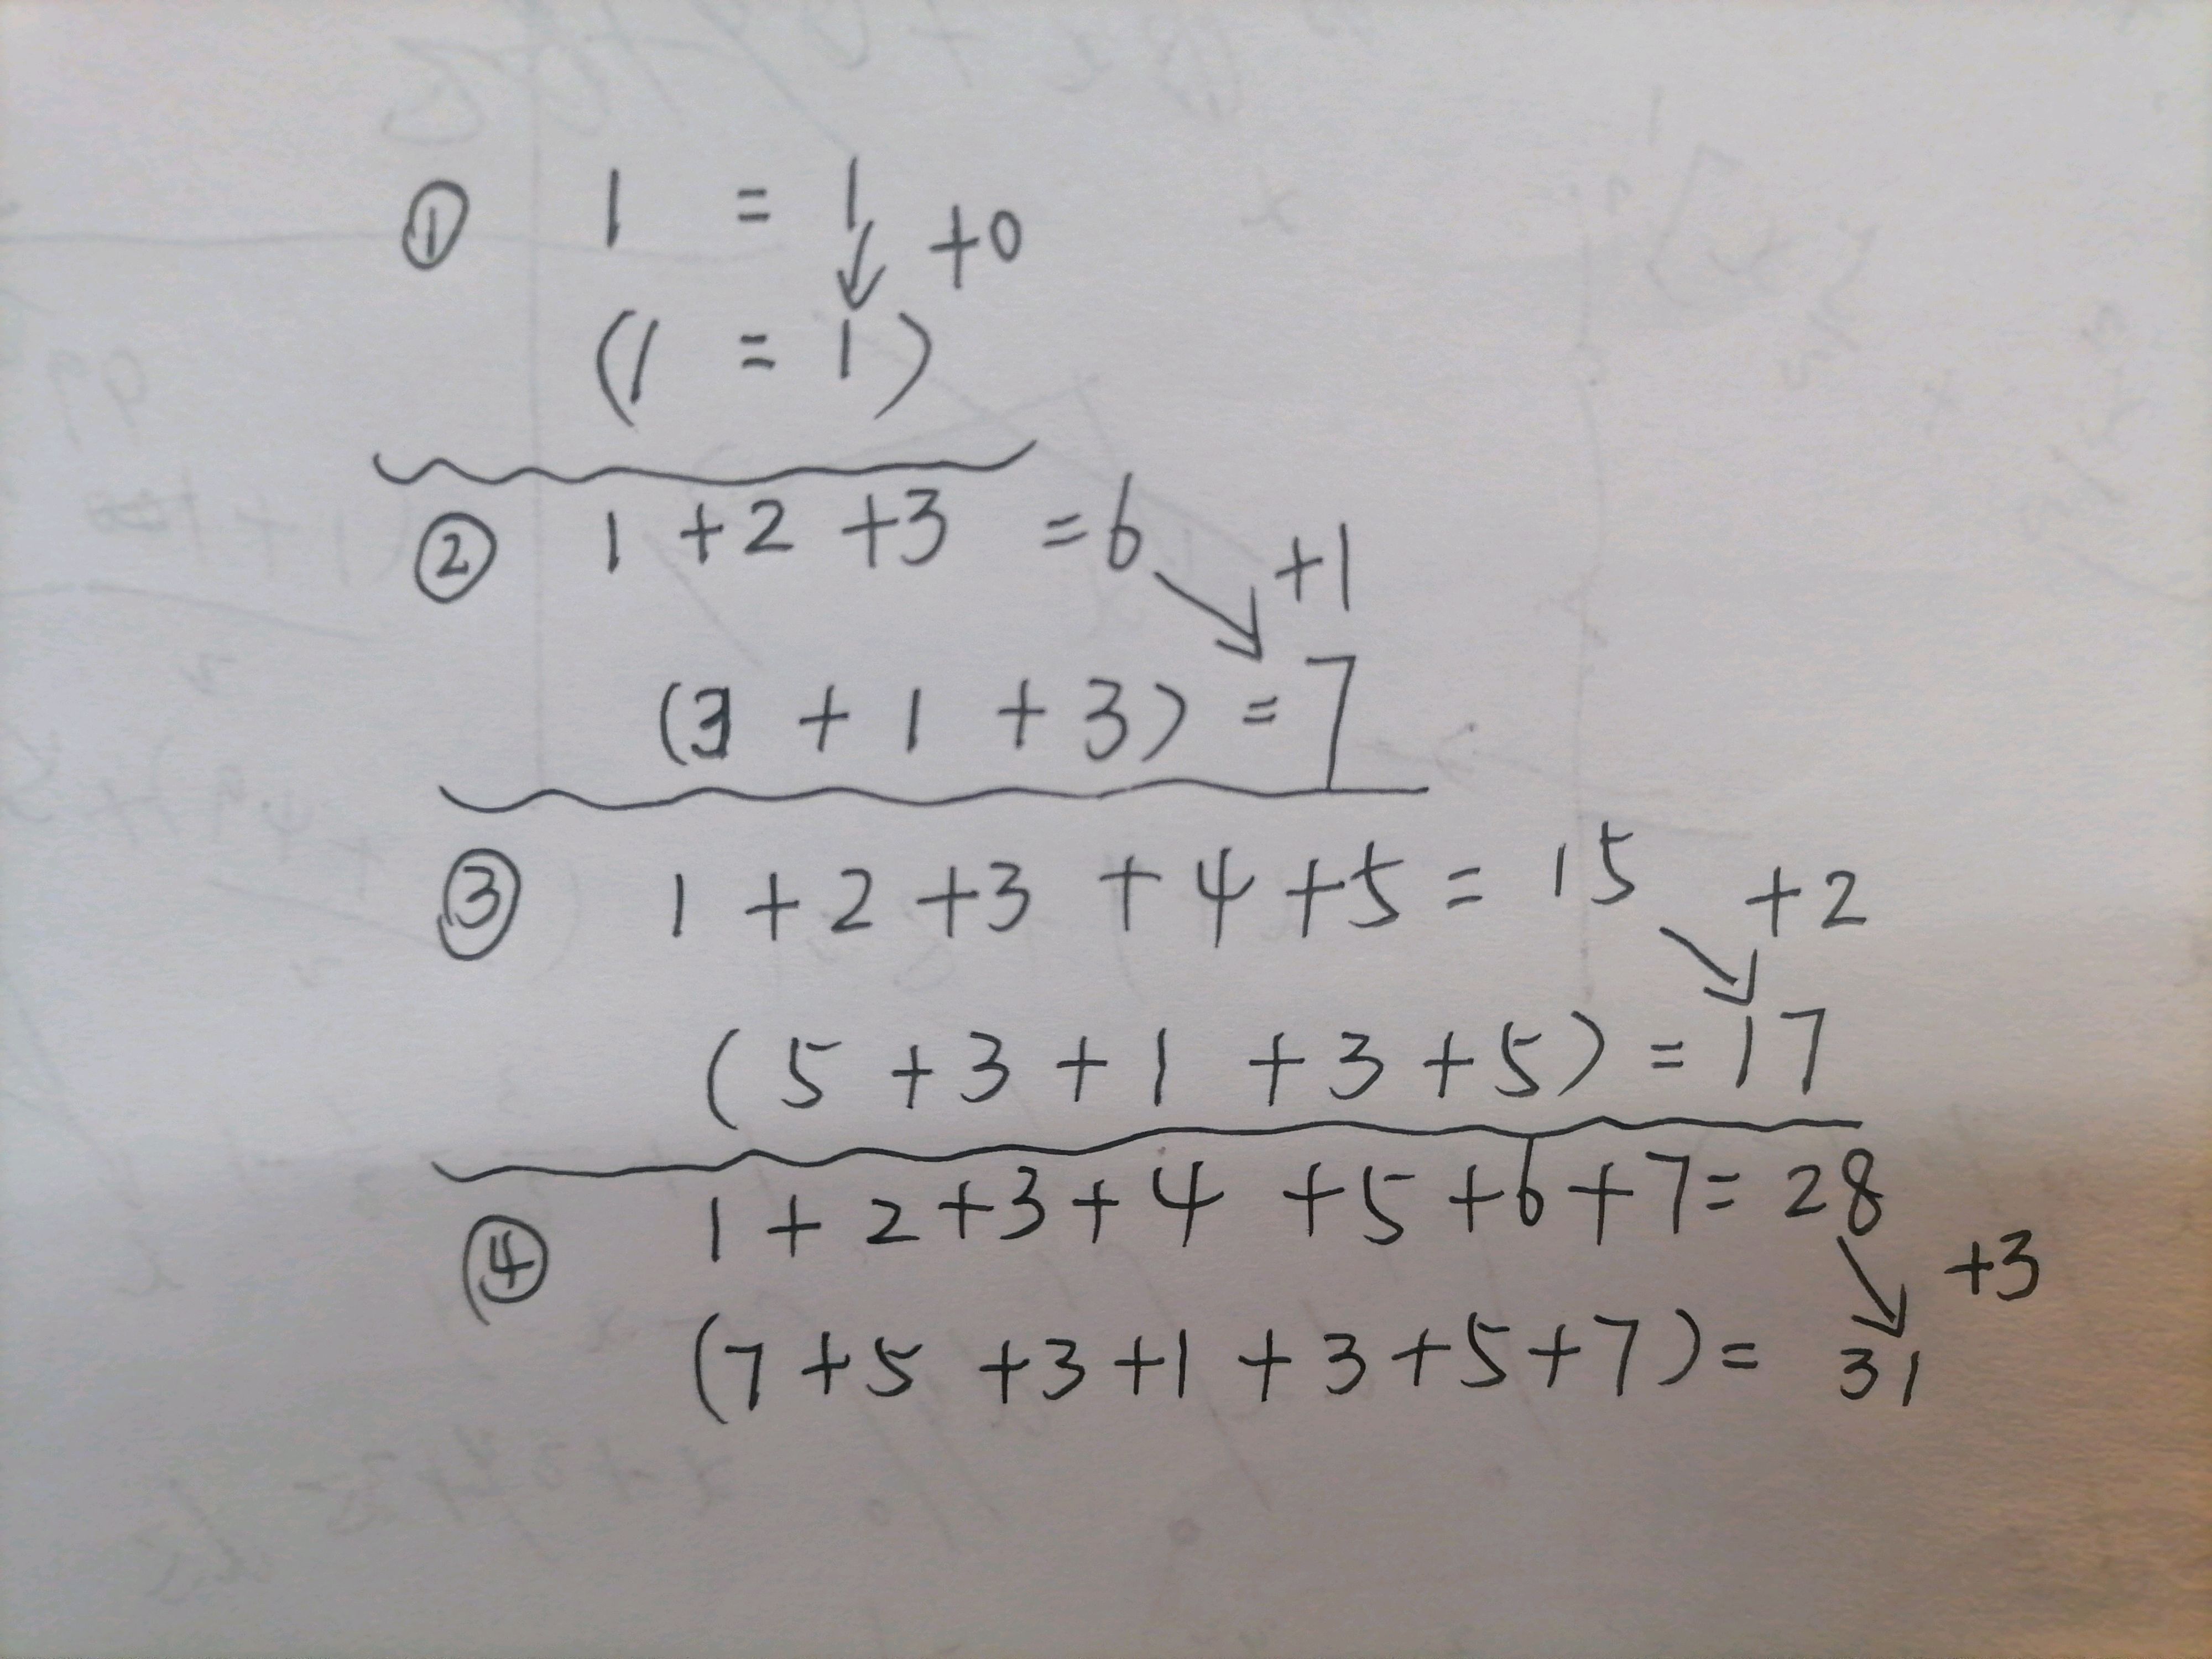 ① 1 = 1 +0
(1 = 1)
② 1 + 2 + 3 = 6 +1
(3 + 1 + 3) = 7
③ 1 + 2 + 3 + 4 + 5 = 15 +2
(5 + 3 + 1 + 3 + 5) = 17
④ 1 + 2 + 3 + 4 + 5 + 6 + 7 = 28 +3
(7 + 5 + 3 + 1 + 3 + 5 + 7) = 31